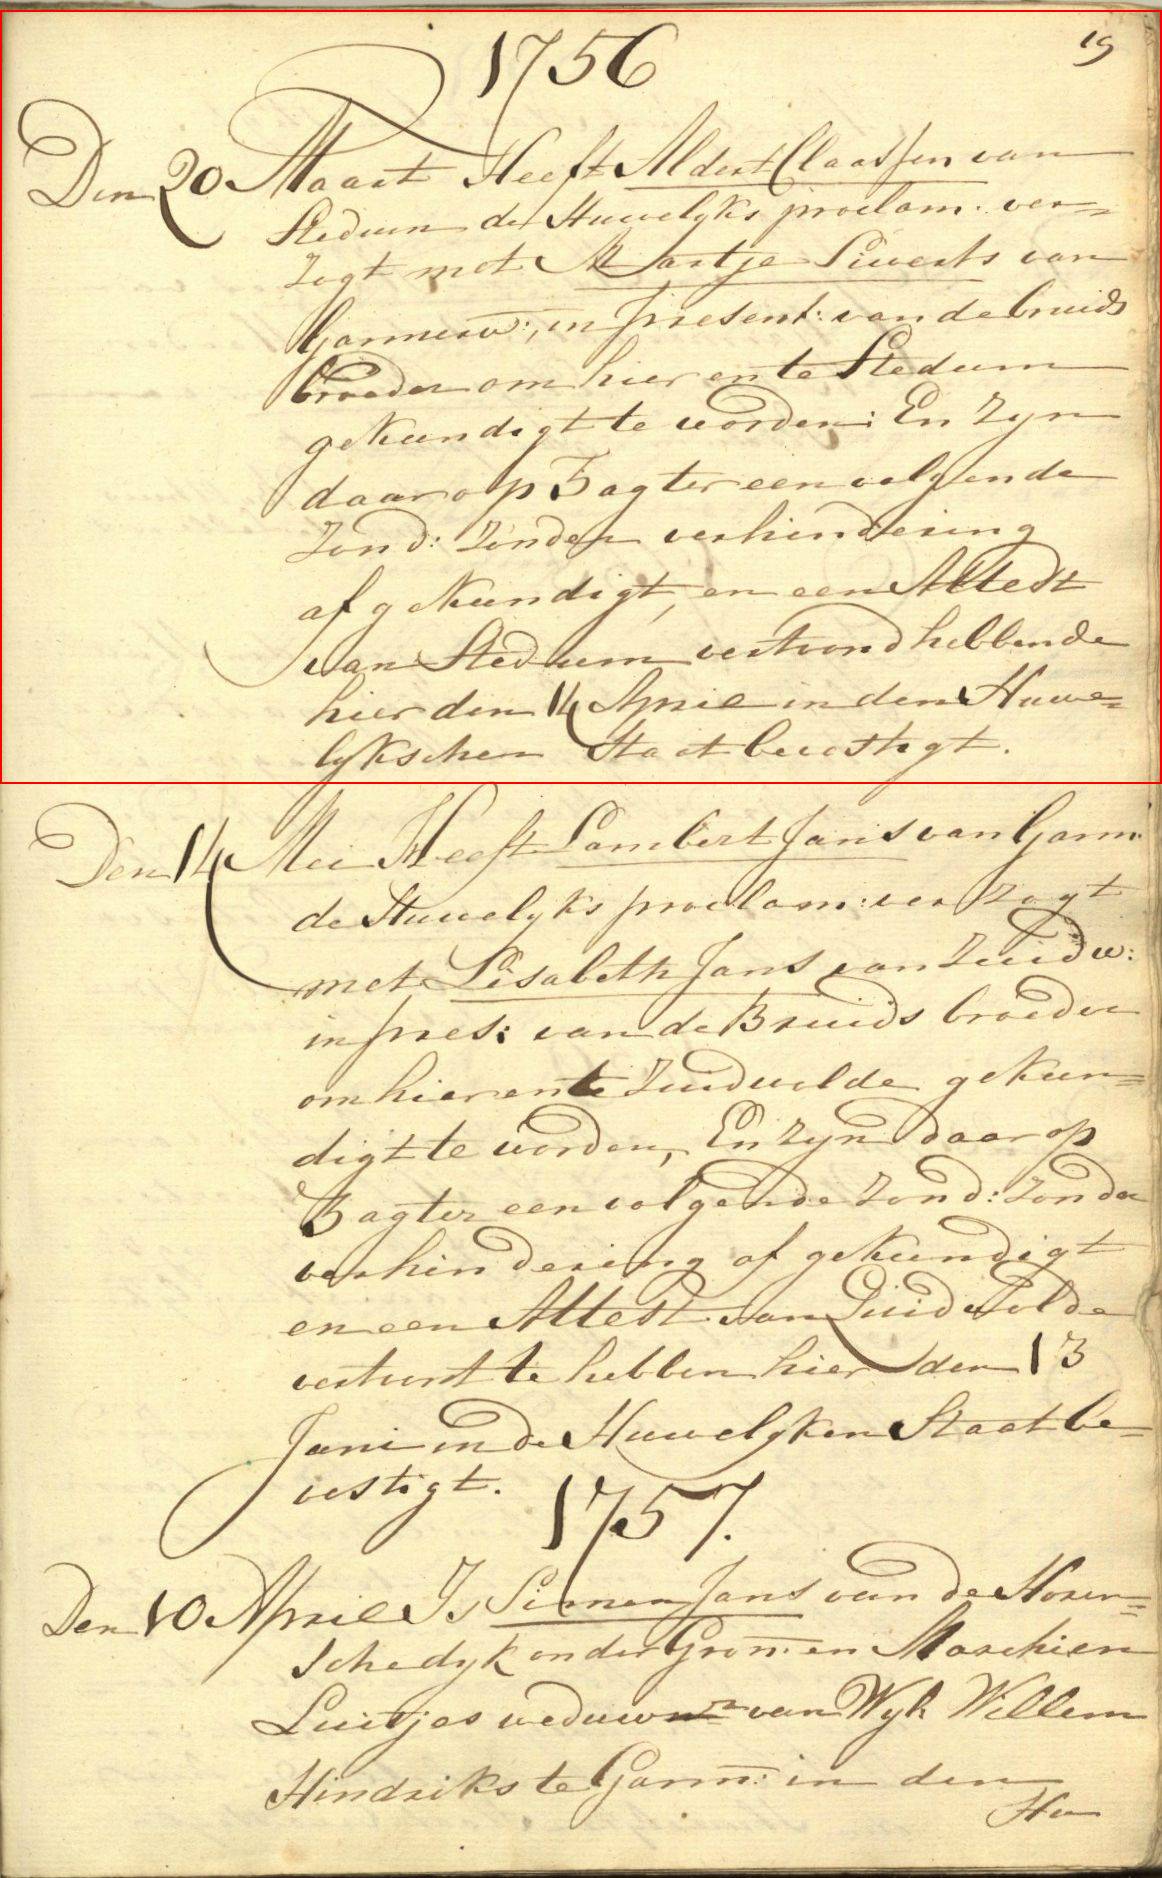 19
1756
Den 20 Maart Heeft Aldert Claassen van
Stedum de Huwelyks proclam: ver=
zogt met Martje Siwerts van
Garmerw:, in present: van de bruids
broeder om hier en te Stedum
gekundigt te worden: En zyn
daar op 3 agter een volgende
Zond: zonder verhindering
af gekundigt, en een Attest
van Stedum vertoond hebbende
hier den 14 April in den Huwe=
lykschen Staat bevestigt.
Den 14 Mei Heeft Lambert Jans van Garm:
de Huwelyks proclam: ver zogt
met Lisabeth Jans van Zuidw:
in pres: van de Bruids broeder
om hier en te Zuidwolde gekun=
digt te worden, En zyn daar op
3 agter een volgende Zond: zonder
verhindering af gekundigt
en een Attest van Zuidwolde
vertoont te hebben hier den 13
Juni in de Huwelyken Staat be=
vestigt.
1757.
Den 10 April Is Simen Jans van de Noor=
schedyk onder Gron: en Maschien
Luitjes weduw van Wyl: Willem
Hindriks te Garm: in den
Hu